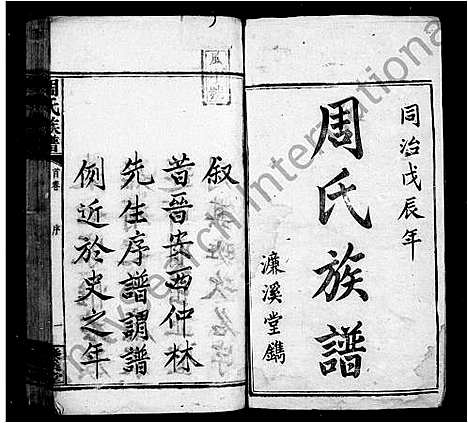 同治戊辰年
周氏族譜
濂溪堂鐫
叙
昔晉安西仲林
先生序譜謂譜
例近於史之年
周氏族譜
首卷
序
一